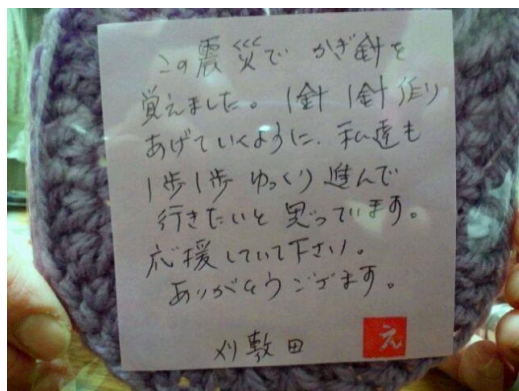 この震災で かぎ針を
覚えました。1針1針作り
あげていくように、私達も
1歩1歩 ゆっくり進んで
行きたいと思っています。
応援していて下さい。
ありがとうございます。
刈敷田 え